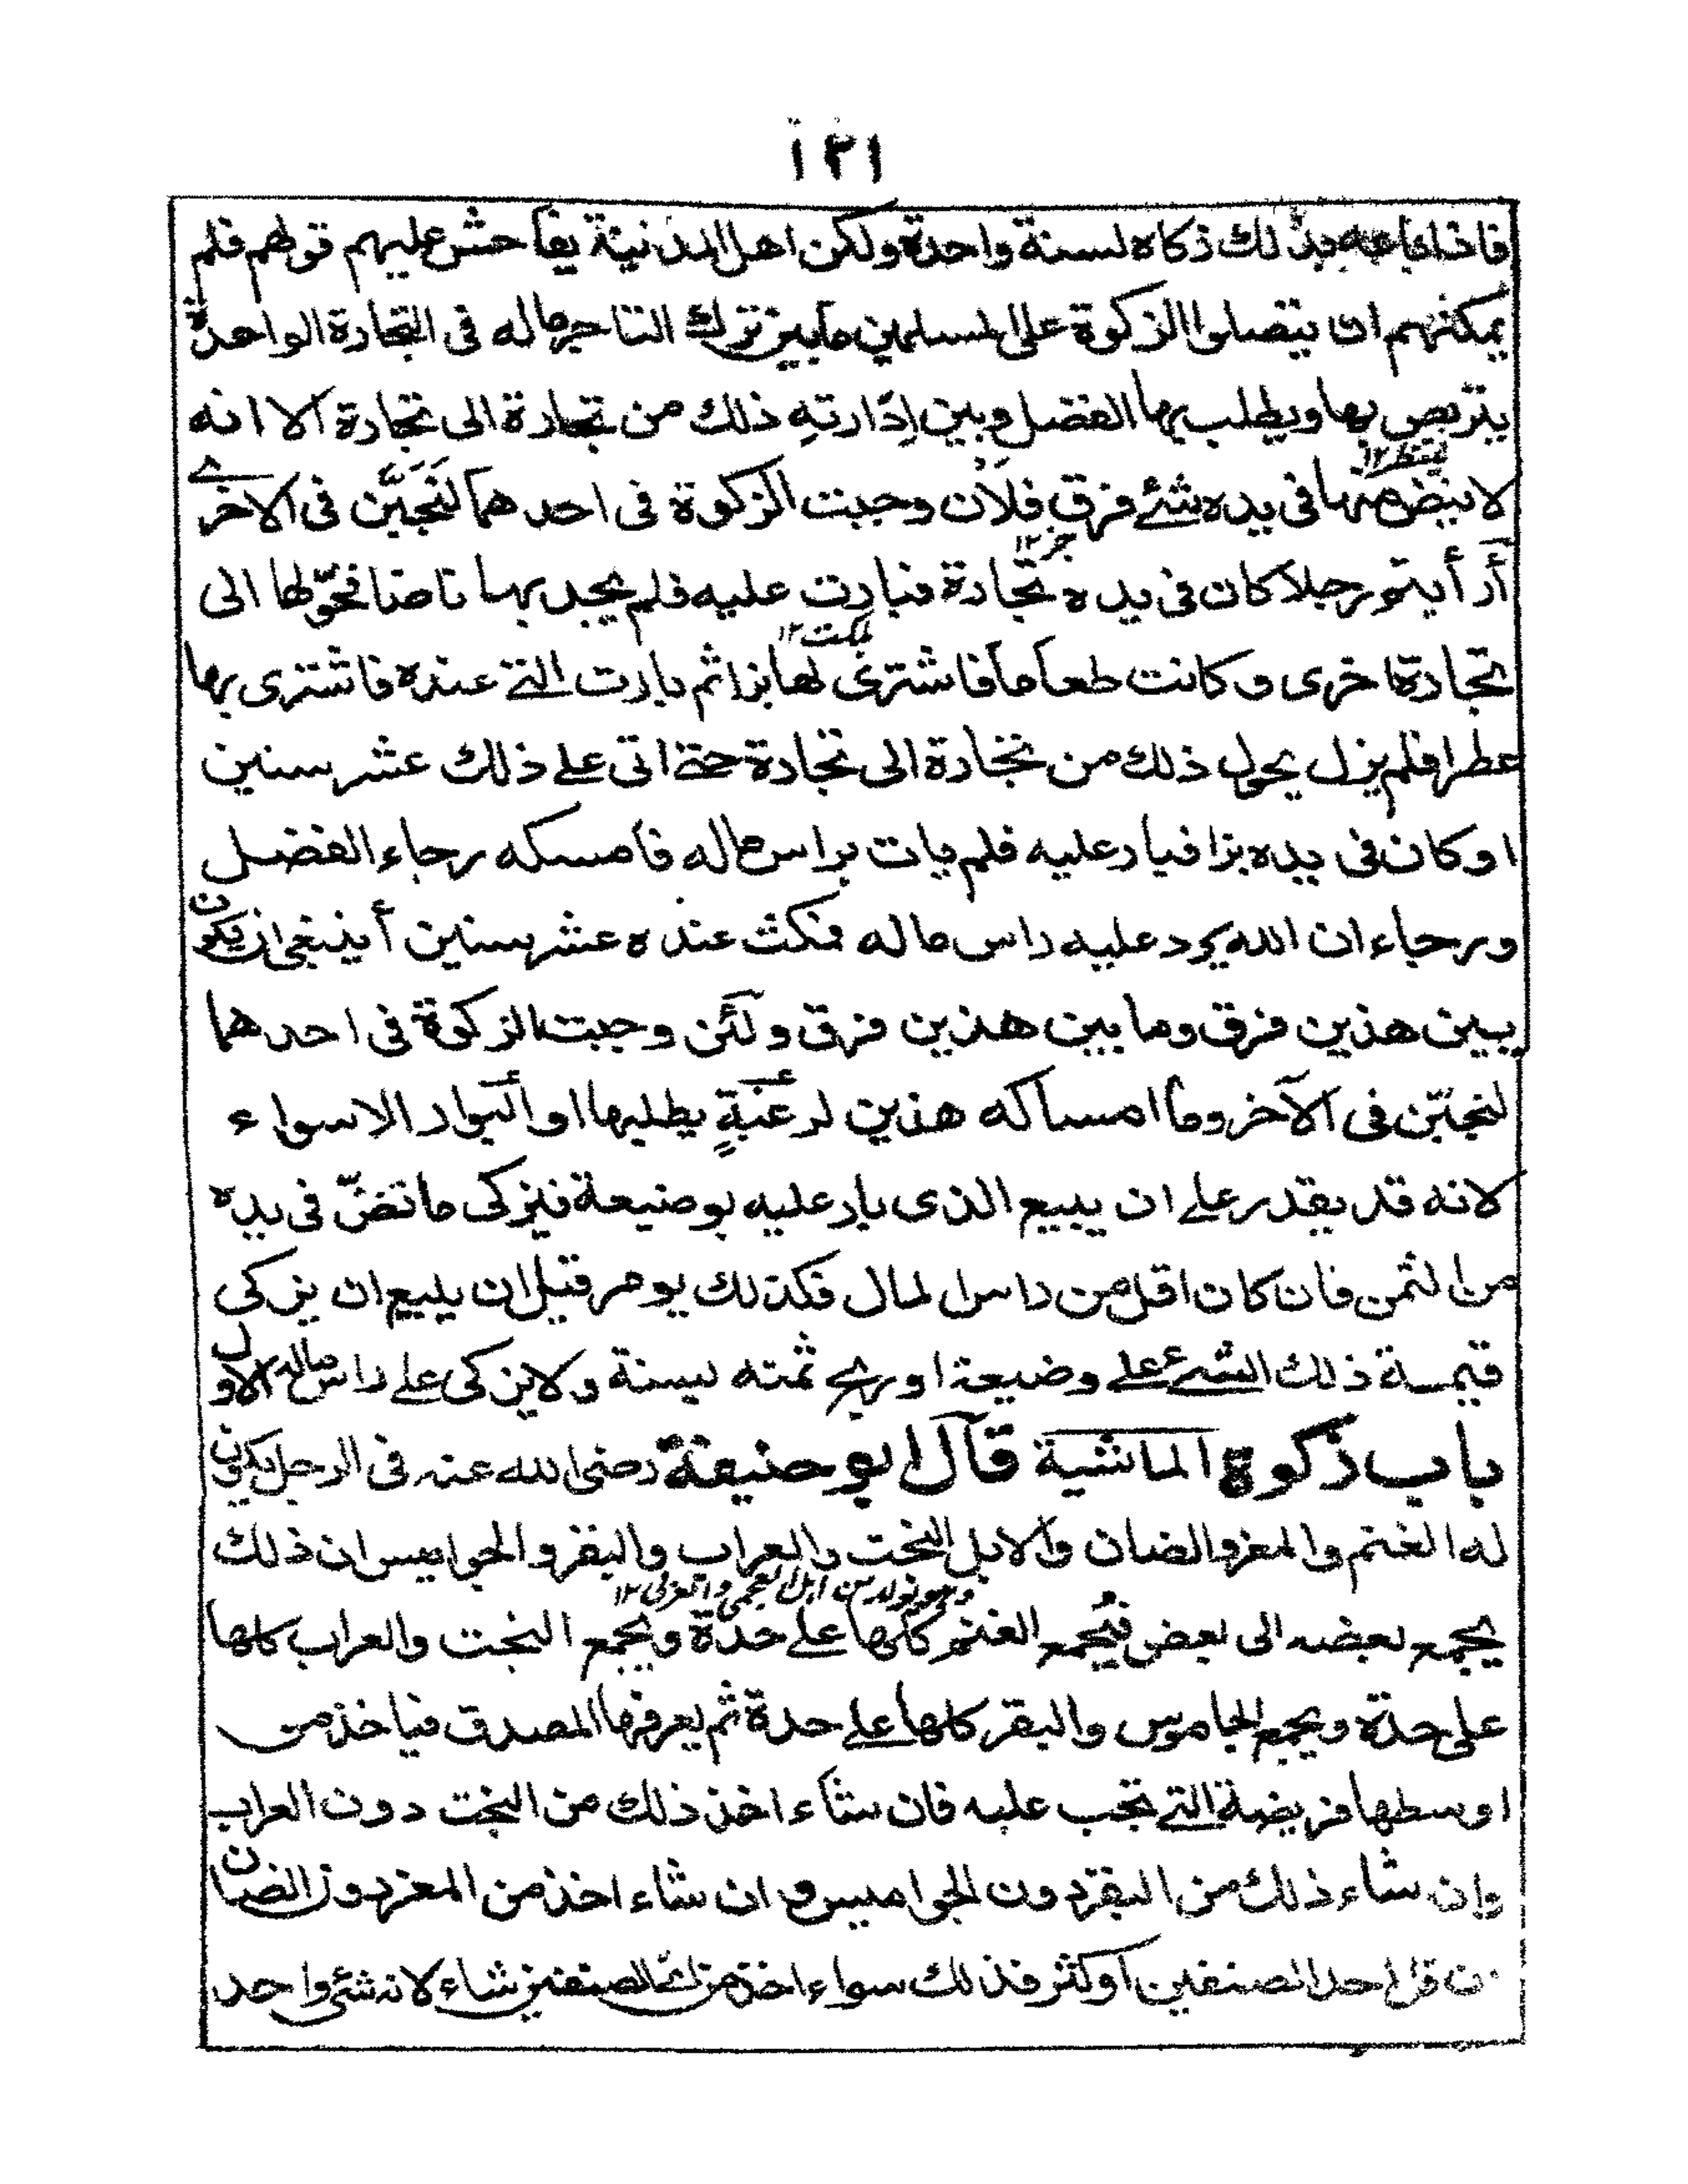 ١٢١
فاذا باعه بذلك زكاه لسنة واحدة ولكن اهل المدنية يفاحش عليهم قولهم فلم
يمكنهم ان يتصلوا الزكوة على المسلمين مابين ترك التاجر ماله فى التجارة الواحدة
يتربص بها ويطلب بها الفضل وبين إدَارتهِ ذلك من تجارة الى تجارة الا انه
ينتظر١٢
لا ينض منها فى يده شئے فرق فلان وجبت الزكوة فى احدهما لتجبن فى الاخرے
أرأيتم رجلا كان فى يده تجارة فبارت عليه فلم يجد بها ناضا فحوّلها الى
تجارة اخرى وكانت طعاما فاشترى لها بزا ثم بارت التے عنده فاشترى بها
عطرا فلم يزل يحول ذلك من تجارة الى تجارة حتے اتى علے ذلك عشر سنين
او كان فى يده بزا فبار عليه فلم يات براس ماله فامسكه رجاء الفضل
ورجاء ان الله يرد عليه راس ماله فمكث عنده عشر سنين أينبغى ان يكون
بين هذين فرق وما بين هذين فرق ولئن وجبت الزكوة فى احدهما
لتجبّن فى الآخر وما امساكه هذين لرغبةٍ يطلبها او البوار الا سواء
لانه قد يقدر علے ان يبيع الذى بار عليه بوضيعة فيزكى ما نضّ فى يده
من الثمن فان كان اقل من راس المال فكذلك يومر قبل ان يبيع ان يزكى
قيمة ذلك الشئے علے وضيعة او ربح ثمنه لسنة ولا يزكى علے راس ماله الاول
باب زكوة الماشية قال ابو حنيفة رضى الله عنه فى الرجل يكون
له الغنم والمعز والضان والابل البخت والعراب والبقر والجواميس ان ذلك
وهو تولد من ابل العجمى والعربى ١٢
يجمع بعضه الى بعض فيُجمع الغنم كلها علے حدة ويجمع البخت والعراب كلها
على حدة ويجمع الجاموس والبقر كلها علے حدة ثم يعرفها المصدق فياخذ من
اوسطها فريضة التے تجب عليه فان شاء اخذ ذلك من البخت دون العراب
وان شاء ذلك من البقر دون الجواميس وان شاء اخذ من المعز دون الضان
ن قل احد الصنفين او كثر فذلك سواء اخذ من اىّ الصنفين شاء لانه شئى واحد